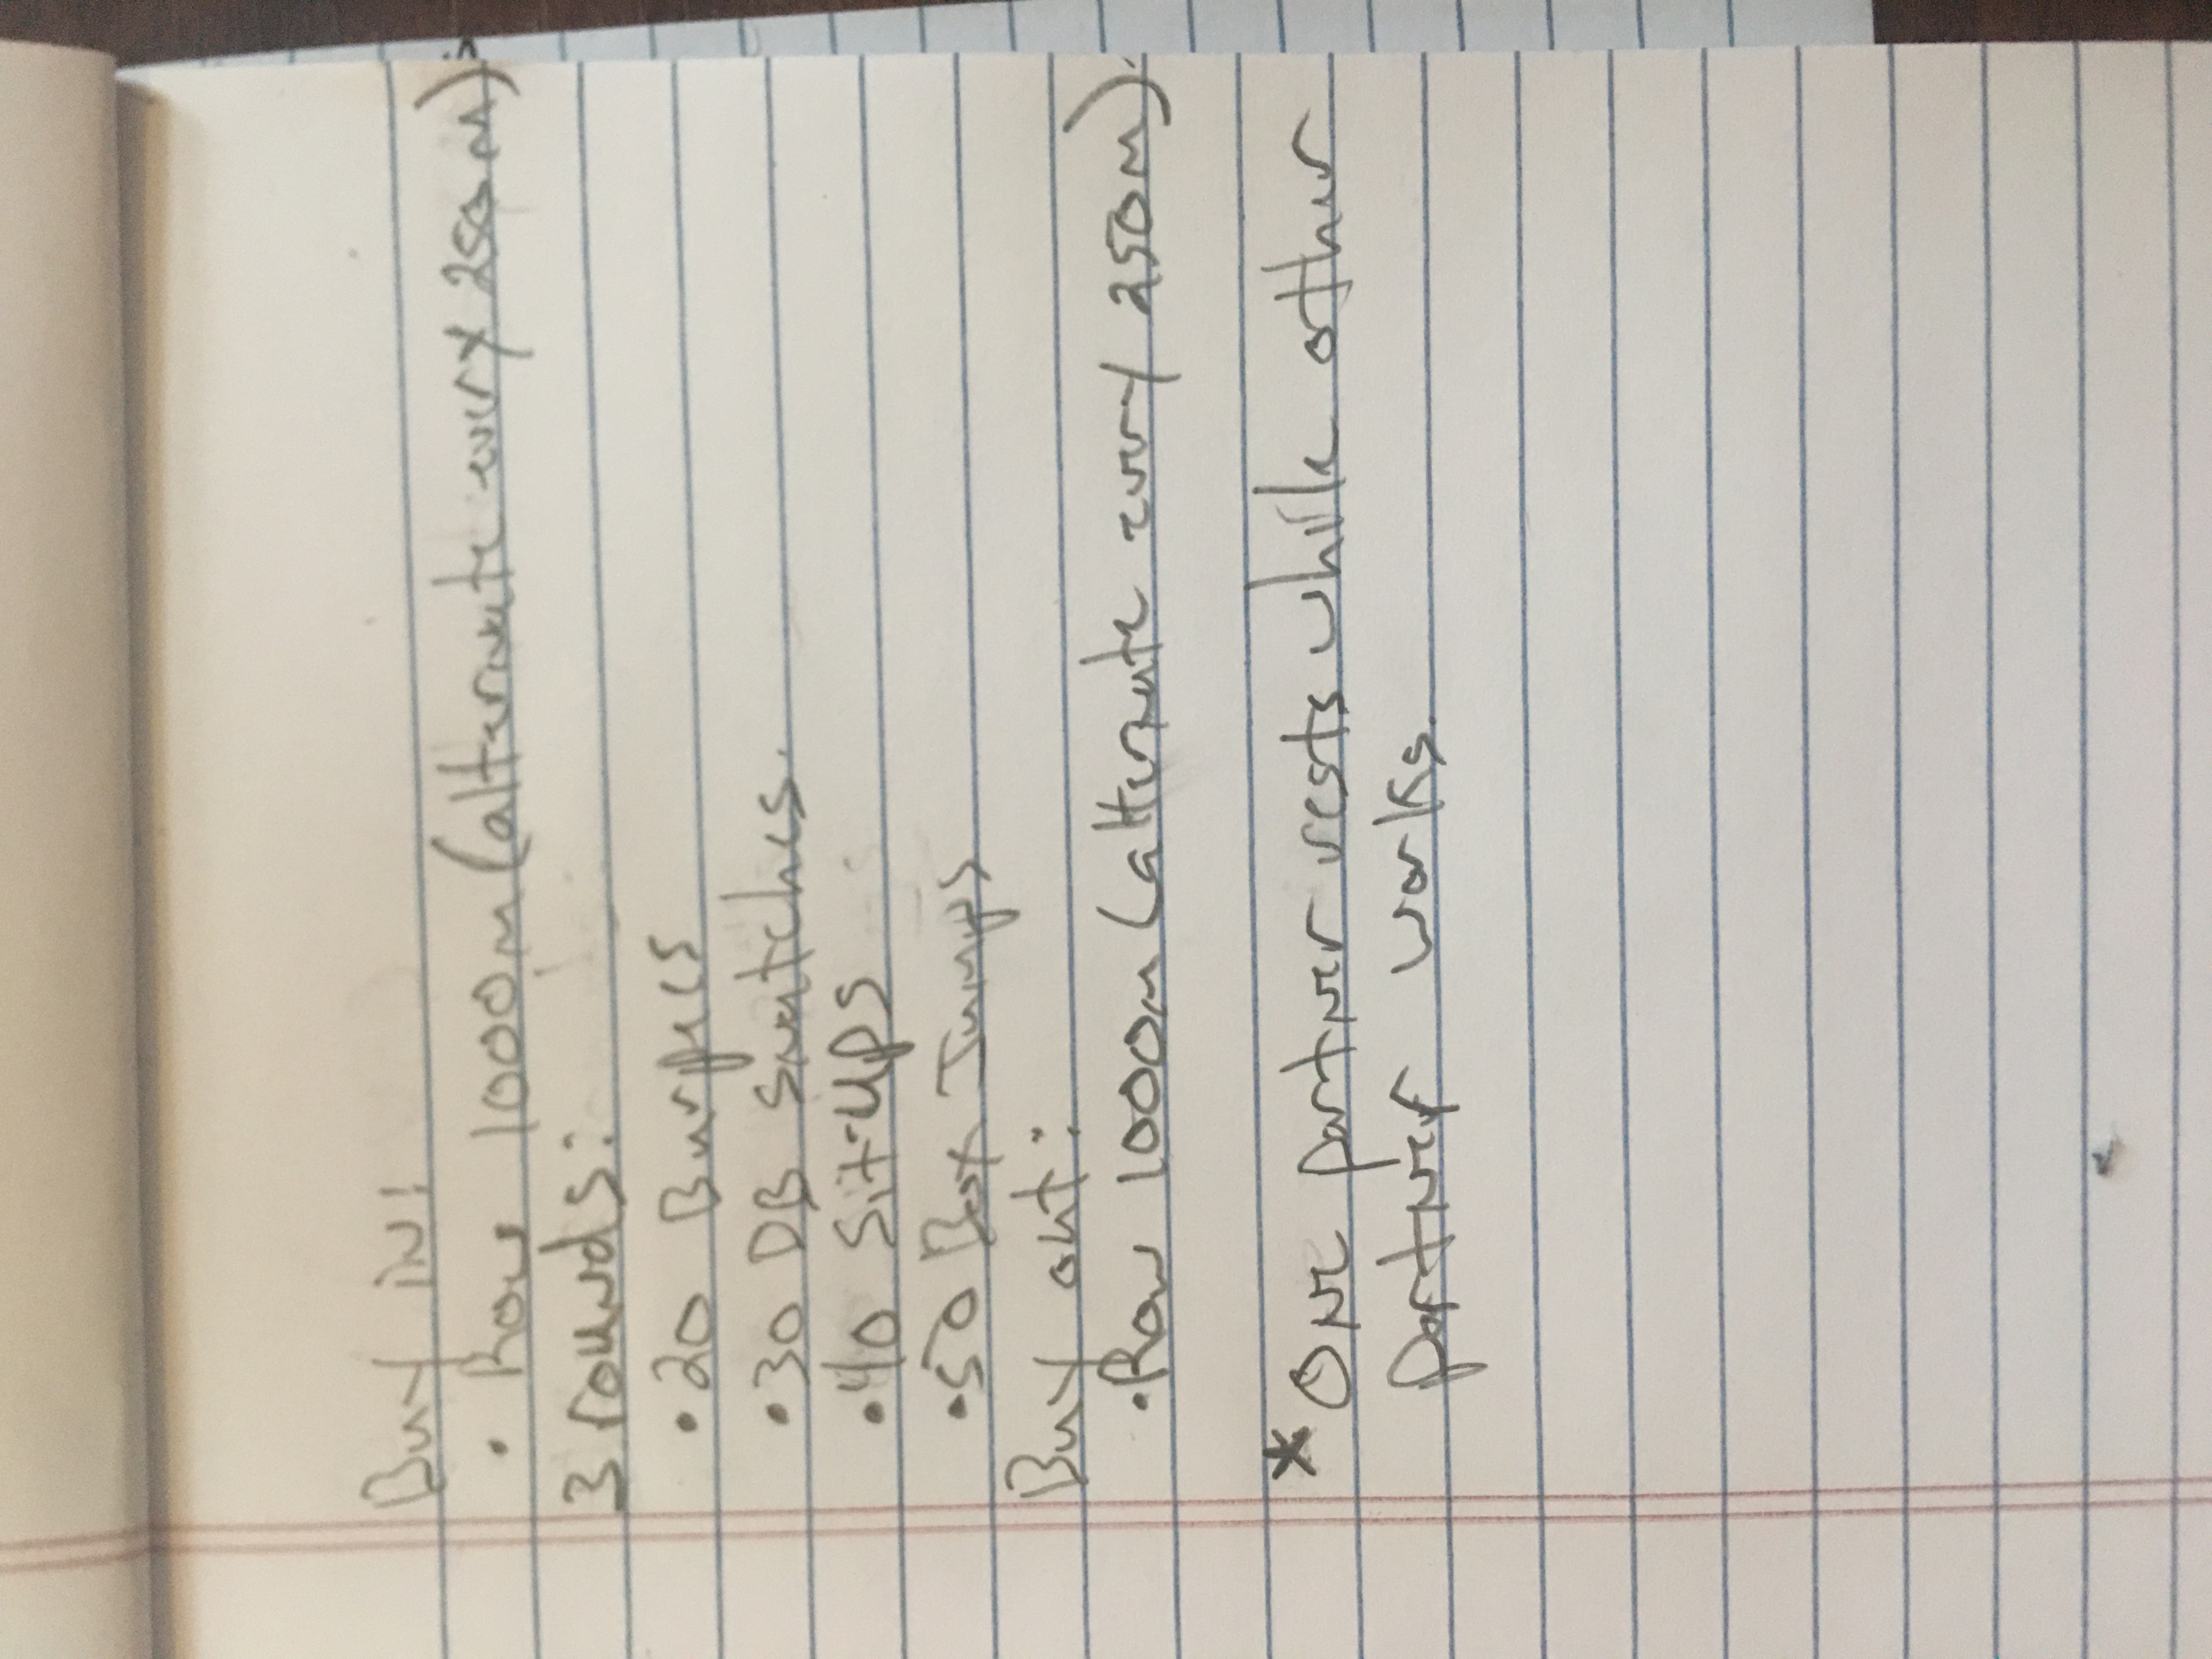 Buy in:
• Row 1000m (alternate every 250m):
3 rounds:
• 20 Burpees
• 30 DB Snatches.
• 40 Sit-Ups
• 50 Box Jumps
Buy out:
• Row 1000m (alternate every 250m):
* One partner rests while other
partner works.